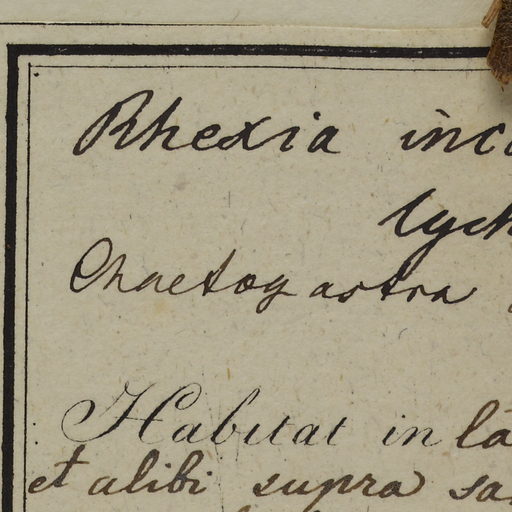 Rhexia inca
lych
Chaetogastra
Habitat in la
et alibi supra sa